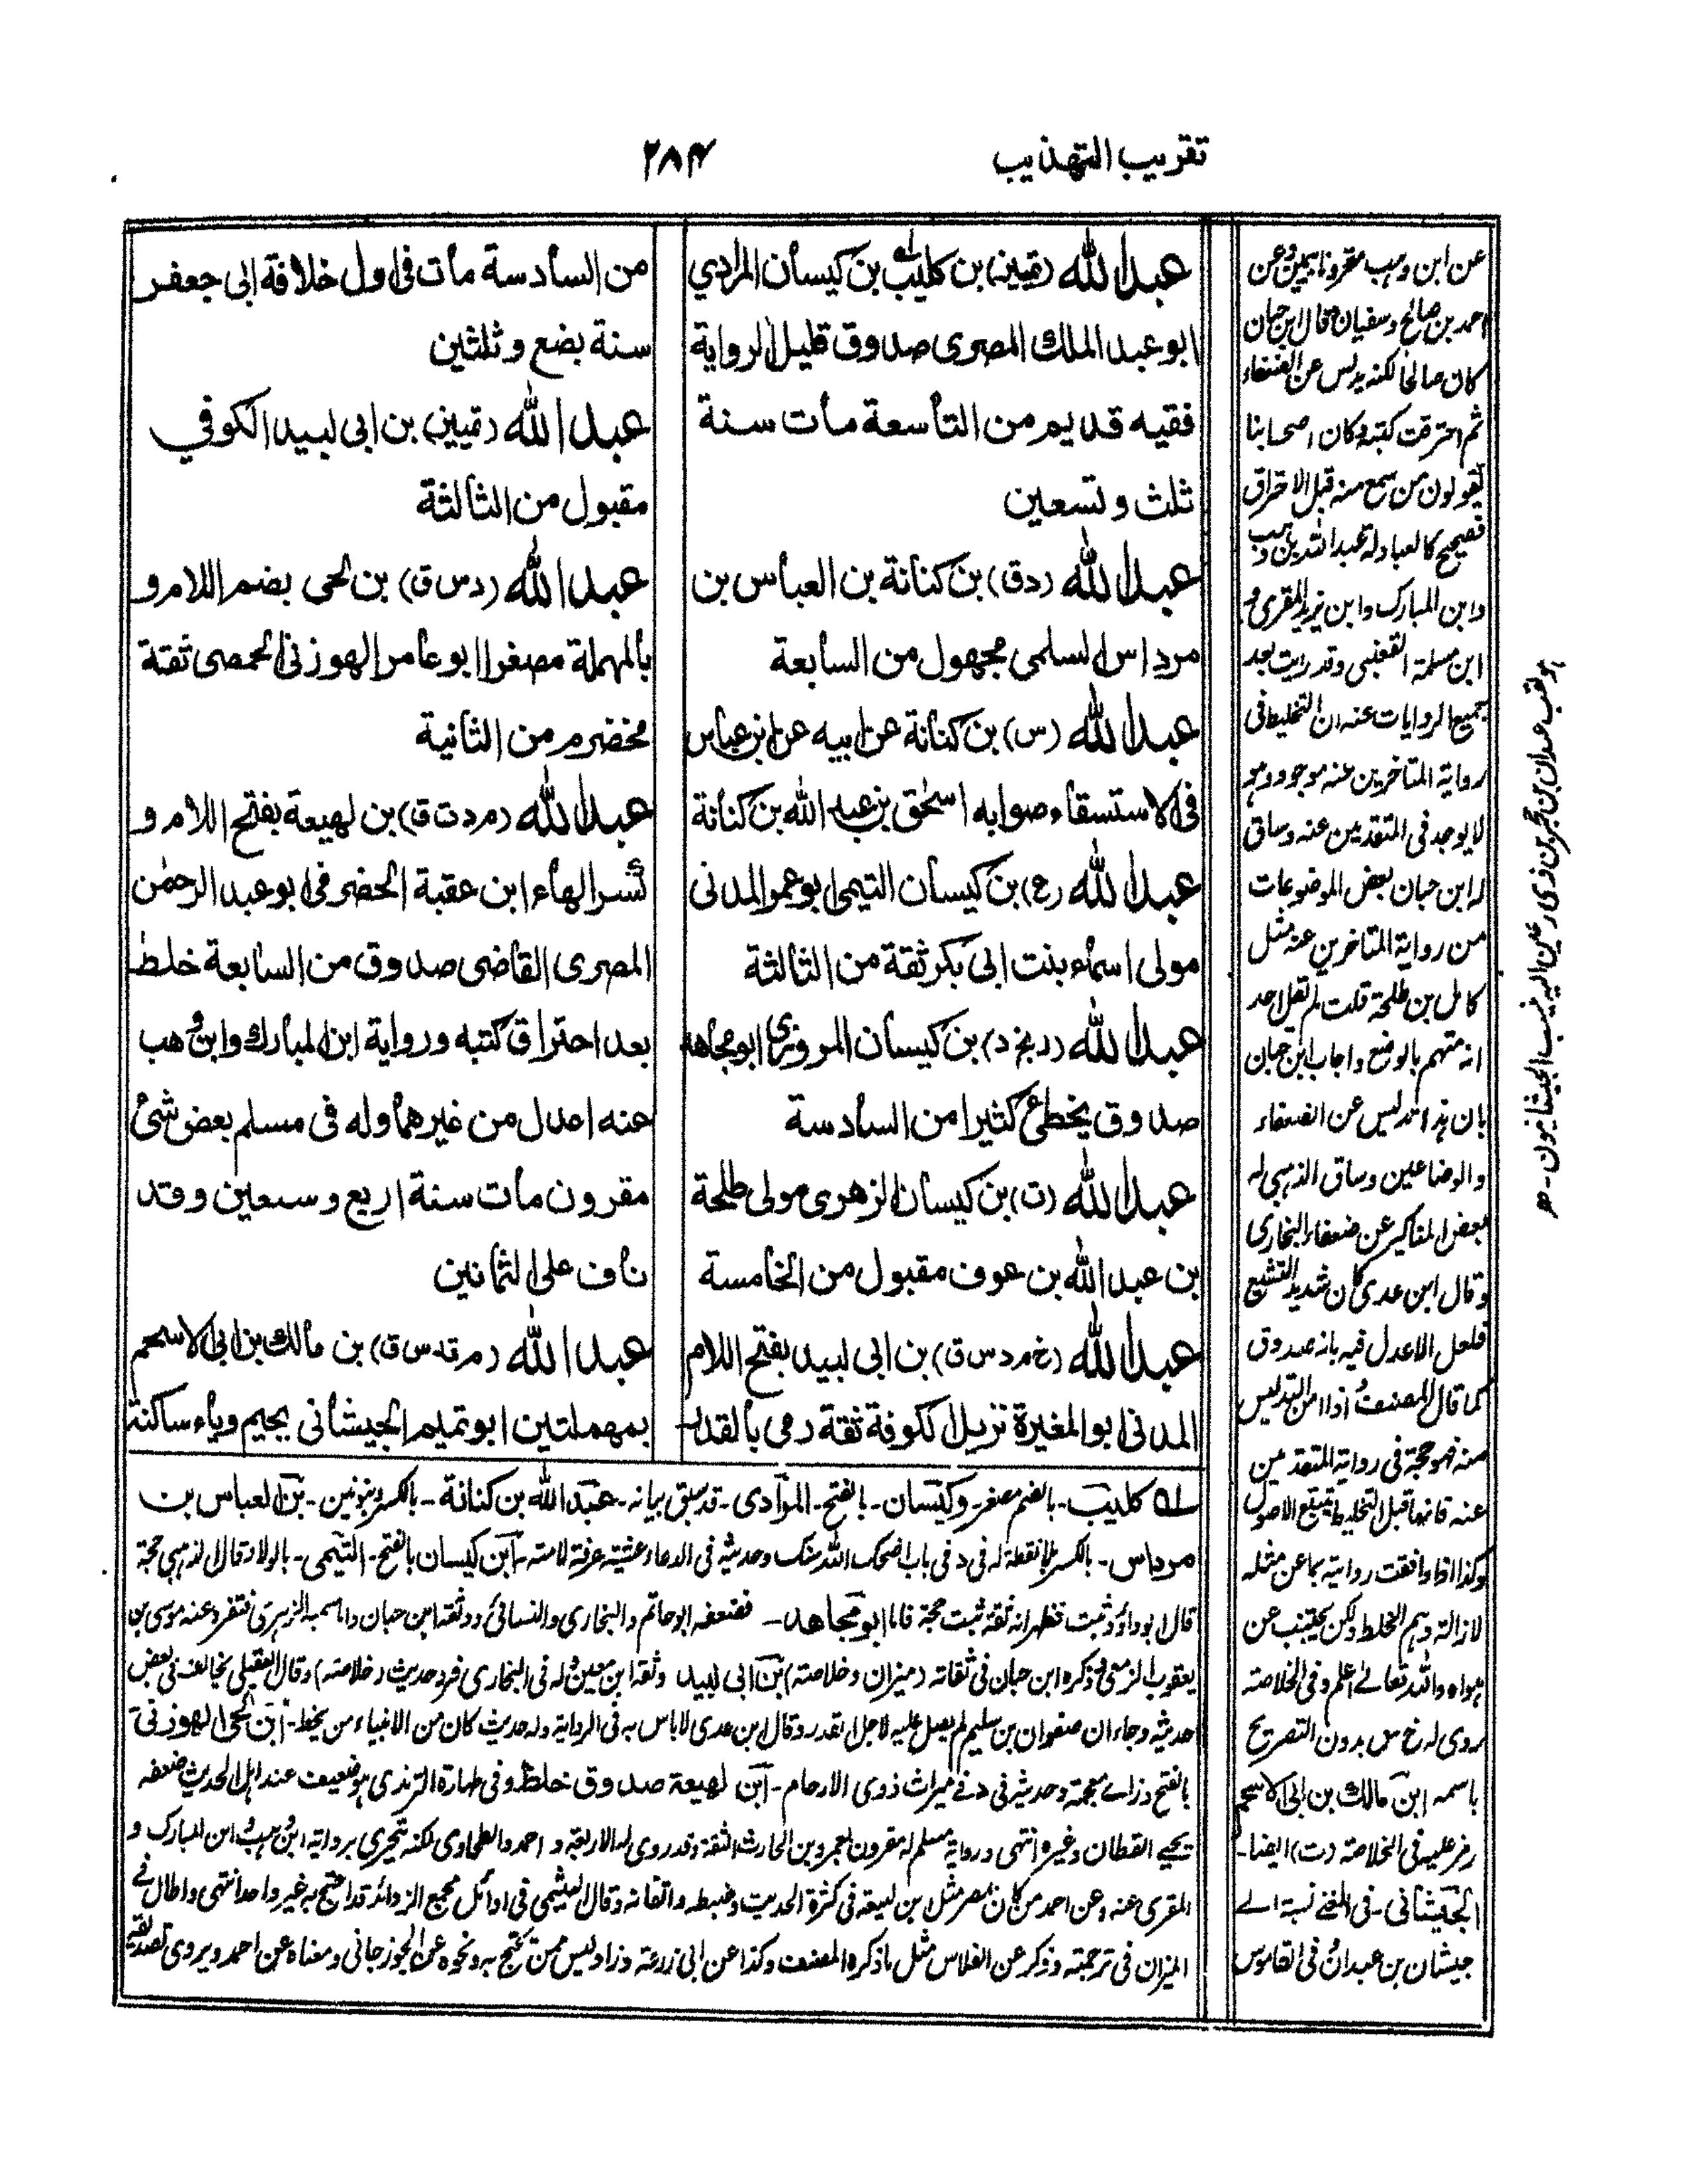 تقريب التهذيب
۲۸۴
عبد الله (تمييز) بن كليب بن كيسان المرادي
ابو عبد الملك المصرى صدوق قليل الرواية
فقيه قديم من التاسعة مات سنة
ثلث وتسعين
عبد الله (د ق) بن كنانة بن العباس بن
مرداس السلمى مجهول من السابعة
عبد الله (س) بن كنانة عن ابيه عن ابن عباس
فى الاستسقاء صوابه اسحٰق بن عبد الله بن كنانة
عبد الله (ع) بن كيسان التيمى ابو عمر المدنى
مولى اسماء بنت ابى بكر ثقة من الثالثة
عبد الله (بخ د) بن كيسان المروزى ابو مجاهد
صدوق يخطئ كثيرا من السادسة
عبد الله (ت) بن كيسان الزهرى مولى طلحة
بن عبد الله بن عوف مقبول من الخامسة
عبد الله (خ م د س ق) بن ابى لبيد بفتح اللام
المدنى ابو المغيرة نزيل الكوفة ثقة رمى بالقدر
من السادسة مات فى اول خلافة ابى جعفر
سنة بضع وثلثين
عبد الله (تمييز) بن ابى لبيد الكوفي
مقبول من الثالثة
عبد الله (د س ق) بن لحى بضم اللام و
بالمهملة مصغرا ابو عامر الهوزنى الحمصى ثقة
مخضرم من الثانية
عبد الله (م د ت ق) بن لهيعة بفتح اللام و
كسر الهاء ابن عقبة الحضرمى ابو عبد الرحمٰن
المصرى القاضى صدوق من السابعة خلط
بعد احتراق كتبه ورواية ابن المبارك وابن وهب
عنه اعدل من غيرهما وله فى مسلم بعض شئ
مقرون مات سنة اربع وسبعين وقد
ناف على الثمانين
عبد الله (م قد س ق) بن مالك بن ابى الاسحم
بمهملتين ابو تميم الجيشانى بجيم وياء ساكنة
له كليب - بالضم مصغر - وكيسان - بالفتح - المرادى - قد سبق بيانه - عبد الله بن كنانة - بالكسر وبنونين - بن العباس بن
مرداس - بالكسر بلا نقطة له فى د فى باب اضحك الله سنك وحديثه فى الدعاء عشية عرفة لامته - ابن كيسان بالفتح - التيمى - بالولاء قال الذهبى حجة
قال ابو داؤد ثبت فظهر انه ثقة ثبت حجة فاما ابو مجاهد - فضعفه ابو حاتم والبخارى والنسائى ووثقه ابن حبان واما سميه الزهرى فتفرد عنه موسى بن
يعقوب الزمعى وذكره ابن حبان فى ثقاته (ميزان وخلاصة) بن ابى لبيد وثقه ابن معين له فى البخارى فرد حديث (خلاصة) وقال العقيلى يخالف فى بعض
حديثه وجاء ان صفوان بن سليم لم يصل عليه لاجل القدر وقال ابن عدى لا باس به فى الرواية وله حديث كان من الانبياء من يخط - ابن لحى الهوزنى
بالفتح وزاے معجمة وحديثه فى د فے ميراث ذوى الارحام - ابن لهيعة صدوق خلط وفى طهارة الترمذى هو ضعيف عند اهل الحديث ضعفه
يحيے القطان وغيره انتهى ورواية مسلم له مقرون بعمرو بن الحارث الثقة وقد روى له الاربعة و احمد والطحاوى لكنه تحرى برواية ابن وهب و ابن المبارك و
المقرى عنه وعن احمد من كان بمصر مثل ابن لهيعة فى كثرة الحديث وضبطه واتقانه وقال الهيثمى فى اوائل مجمع الزوائد قد احتج به غير واحد انتهى واطال فے
الميزان فى ترجمته وذكر عن الفلاس مثل ما ذكره المصنف وكذا عن ابى زرعة وزاد ليس ممن يحتج به ونحوه عن الجوزجانى ومعناه عن احمد ويروى تصديقه
عن ابن وهب مقرونا بيمين وعن
احمد بن صالح وسفيان وقال ابن حبان
كان صالحا لكنه يدلس عن الضعفاء
ثم احترقت كتبه وكان اصحابنا
يقولون من سمع منه قبل الاحتراق
فصحيح كالعبادلة عبد الله بن وهب
وابن المبارك وابن يزيد المقرى و
ابن مسلمة القعنبى وقد رايت بعد
جميع الروايات عنه ان التخليط فى
رواية المتاخرين عنه موجود وهو
لا يوجد فى المتقدمين عنه وساق
له ابن حبان بعض الموضوعات
من رواية المتاخرين عنه مثل
كامل بن طلحة قلت لم يقل احد
انه متهم بالوضع واجاب ابن حبان
بان هذا تدليس عن الضعفاء
والوضاعين وساق الذهبى له
بعض المناكير عن ضعفاء البخارى
وقال ابن عدى كان شديد التشيع
فلعل الاعدل فيه بانه صدوق
كما قال المصنف اذا امن التدليس
منه فهو حجة فى رواية المتقدمين
عنه فانها قبل التخليط تتبع الاصول
وكذا اذا وافقت رواية بما عن مثله
لازالة وهم الخلط ولكن يجتنب عن
سواه والله تعالے اعلم وفى الخلاصة
روى له خ س بدون التصريح
باسمه ابن مالك بن ابى الاسحم
رمز عليه فى الخلاصة (ت) ايضا -
الجيشانى - فى المغنے نسبة الے
جيشان بن عبدان فى القاموس
هو لقب عبدان بن حجر بن ذى رعين اليه نسب الجيشانيون - ۱۲